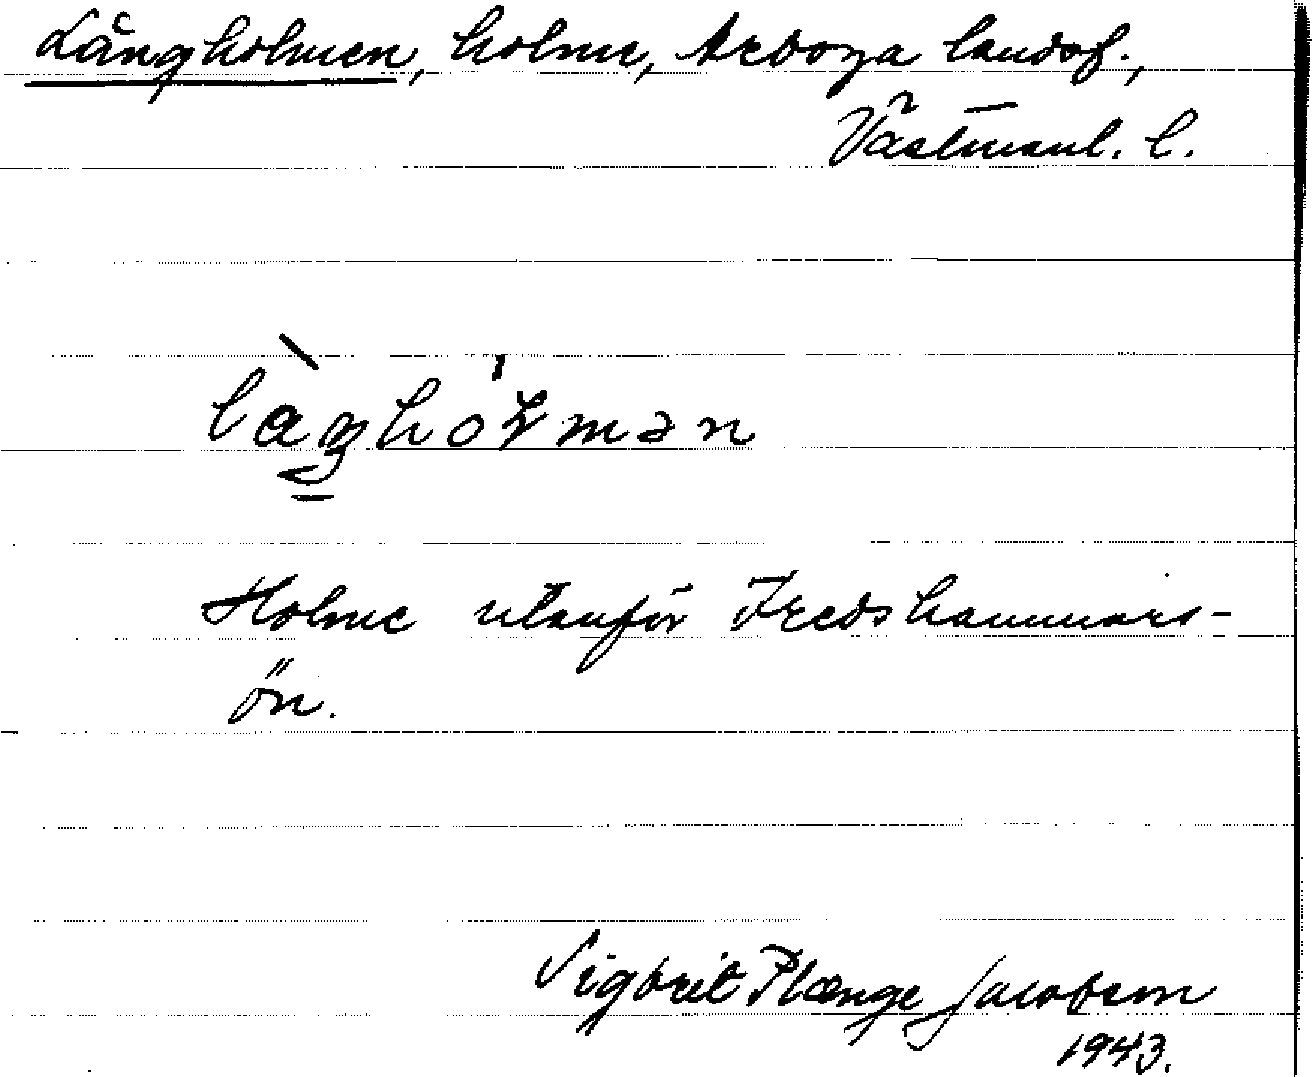 Långholmen, holme, Arboga landsf.,
Västmanl. l.
Holme utanför Fredshammars-
ön.
Sigbrit Plænge Jacobson
1943.